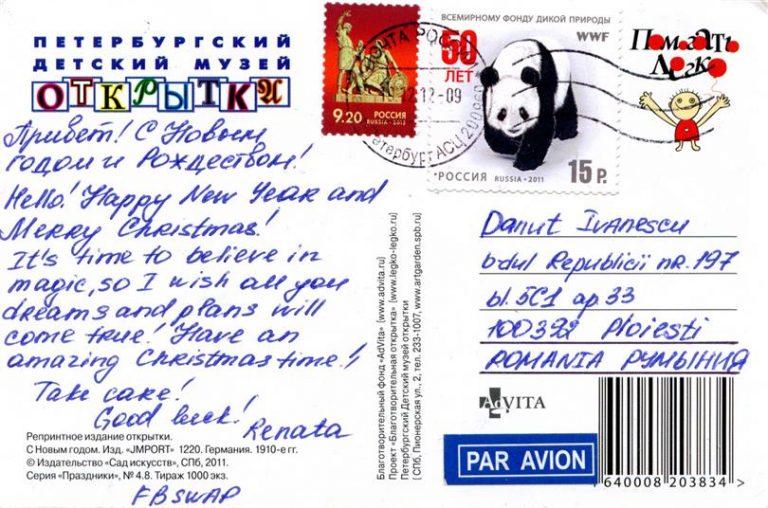 ПЕТЕРБУРГСКИЙ
ДЕТСКИЙ МУЗЕЙ
ОТКРЫТКИ
Привет! С Новым
годом и Рождеством!
Hello! Happy New Year and
Merry Christmas!
It's time to believe in
magic, so I wish all you
dreams and plans will
come true! Have an
amazing Christmas time!
Take care!
Good luck!
Renata
Репринтное издание открытки.
С Новым годом. Изд. «JMPORT» 1220. Германия. 1910-е гг.
© Издательство «Сад искусств», СПб, 2011.
Серия «Праздники», № 4.8. Тираж 1000 экз.
FB SWAP
9.20 РОССИЯ
RUSSIA • 2012
ВСЕМИРНОМУ ФОНДУ ДИКОЙ ПРИРОДЫ
WWF
50
ЛЕТ
РОССИЯ RUSSIA • 2011 15 Р.
ПОЧТА РОС
12-09
Помогать
Легко
Благотворительный фонд «AdVita» [www.advita.ru]
Проект «Благотворительная открытка» [www.legko-legko.ru]
Петербургский Детский музей открытки
[СПб, Пионерская ул., 2, тел. 233-1007, www.artgarden.spb.ru]
Danut Ivanescu
b-dul Republicii nr. 197
bl. 5C1 ap 33
100392 Ploiesti
ROMANIA РУМЫНИЯ
AdVITA
PAR AVION
640008 203834